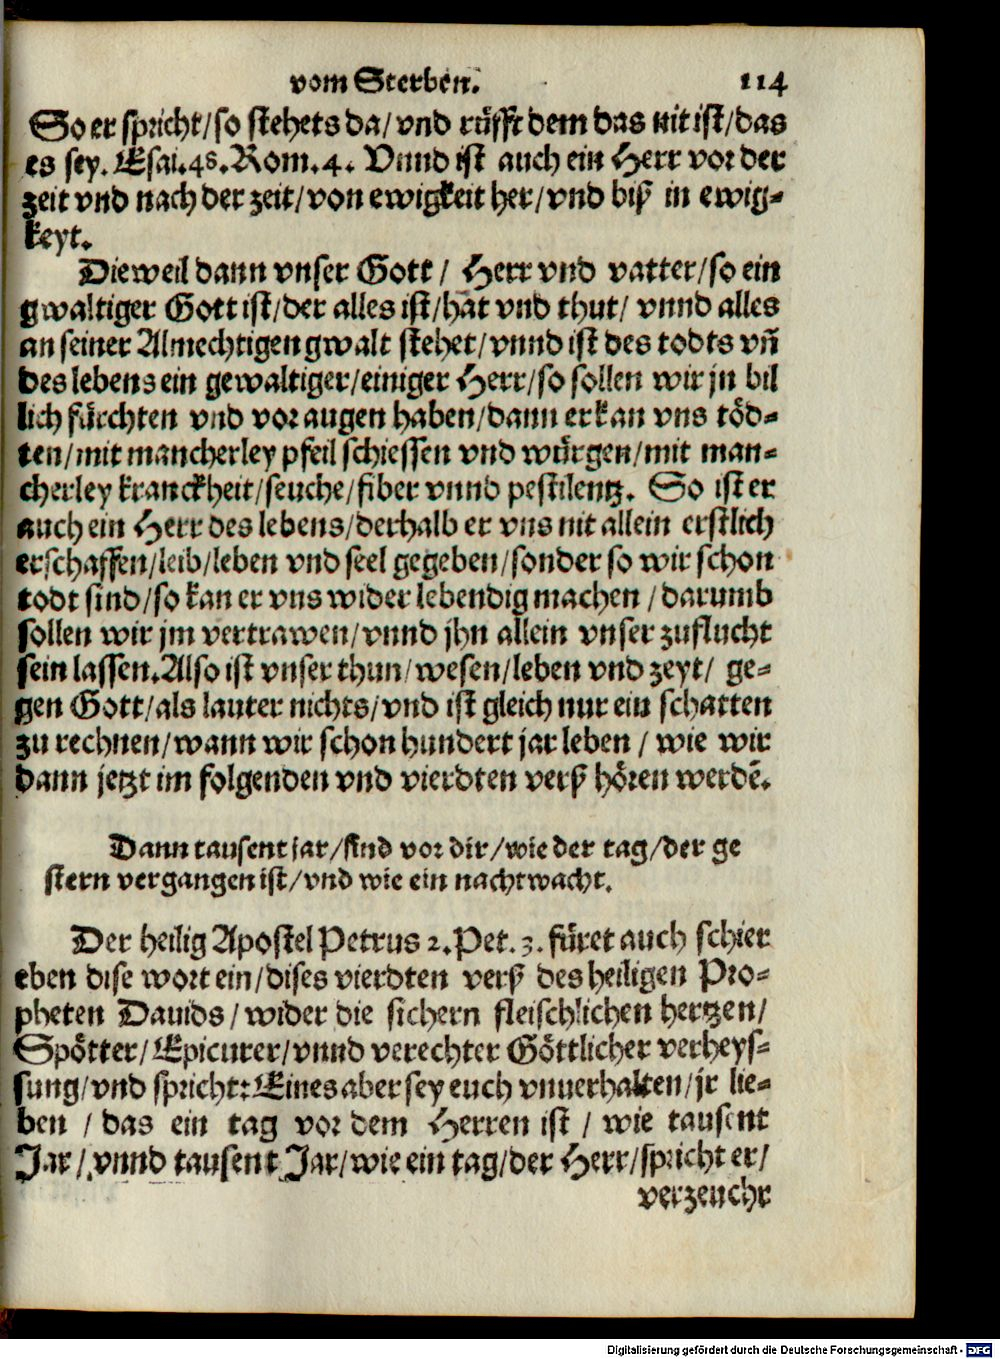 vom Sterben. 114
So er spricht/so stehets da/vnd rüfft dem das nit ist/das
es sey. Esai.48.Rom.4. Vnnd ist auch ein Herr vor der
zeit vnd nach der zeit/von ewigkeit her/vnd biß in ewig-
keyt.
Dieweil dann vnser Gott/ Herr vnd vatter/so ein
gwaltiger Gott ist/der alles ist/hat vnd thut/ vnnd alles
an seiner Almechtigen gwalt stehet/vnnd ist des todts vñ
des lebens ein gewaltiger/einiger Herr/so sollen wir jn bil
lich fürchten vnd vor augen haben/dann er kan vns töd-
ten/mit mancherley pfeil schiessen vnd würgen/mit man-
cherley kranckheit/seuche/fiber vnnd pestilentz. So ist er
auch ein Herr des lebens/derhalb er vns nit allein erstlich
erschaffen/leib/leben vnd seel gegeben/sonder so wir schon
todt sind/so kan er vns wider lebendig machen /darumb
sollen wir jm vertrawen/vnnd jhn allein vnser zuflucht
sein lassen.Also ist vnser thun/wesen/leben vnd zeyt/ ge-
gen Gott/als lauter nichts/vnd ist gleich nur ein schatten
zu rechnen/wann wir schon hundert jar leben / wie wir
dann jetzt im folgenden vnd vierdten verß hören werdẽ.
Dann tausent jar/sind vor dir/wie der tag/der ge
stern vergangen ist/vnd wie ein nachtwacht.
Der heilig Apostel Petrus 2.Pet.3. füret auch schier
eben dise wort ein/dises vierdten verß des heiligen Pro-
pheten Dauids/wider die sichern fleischlichen hertzen/
Spötter/Epicurer/vnnd verechter Göttlicher verheys-
sung/vnd spricht:Eines aber sey euch vnuerhalten/jr lie-
ben / das ein tag vor dem Herren ist / wie tausent
Jar/vnnd tausent Jar/wie ein tag/der Herr/spricht er/
verzeucht
Digitalisierung gefördert durch die Deutsche Forschungsgemeinschaft - DFG